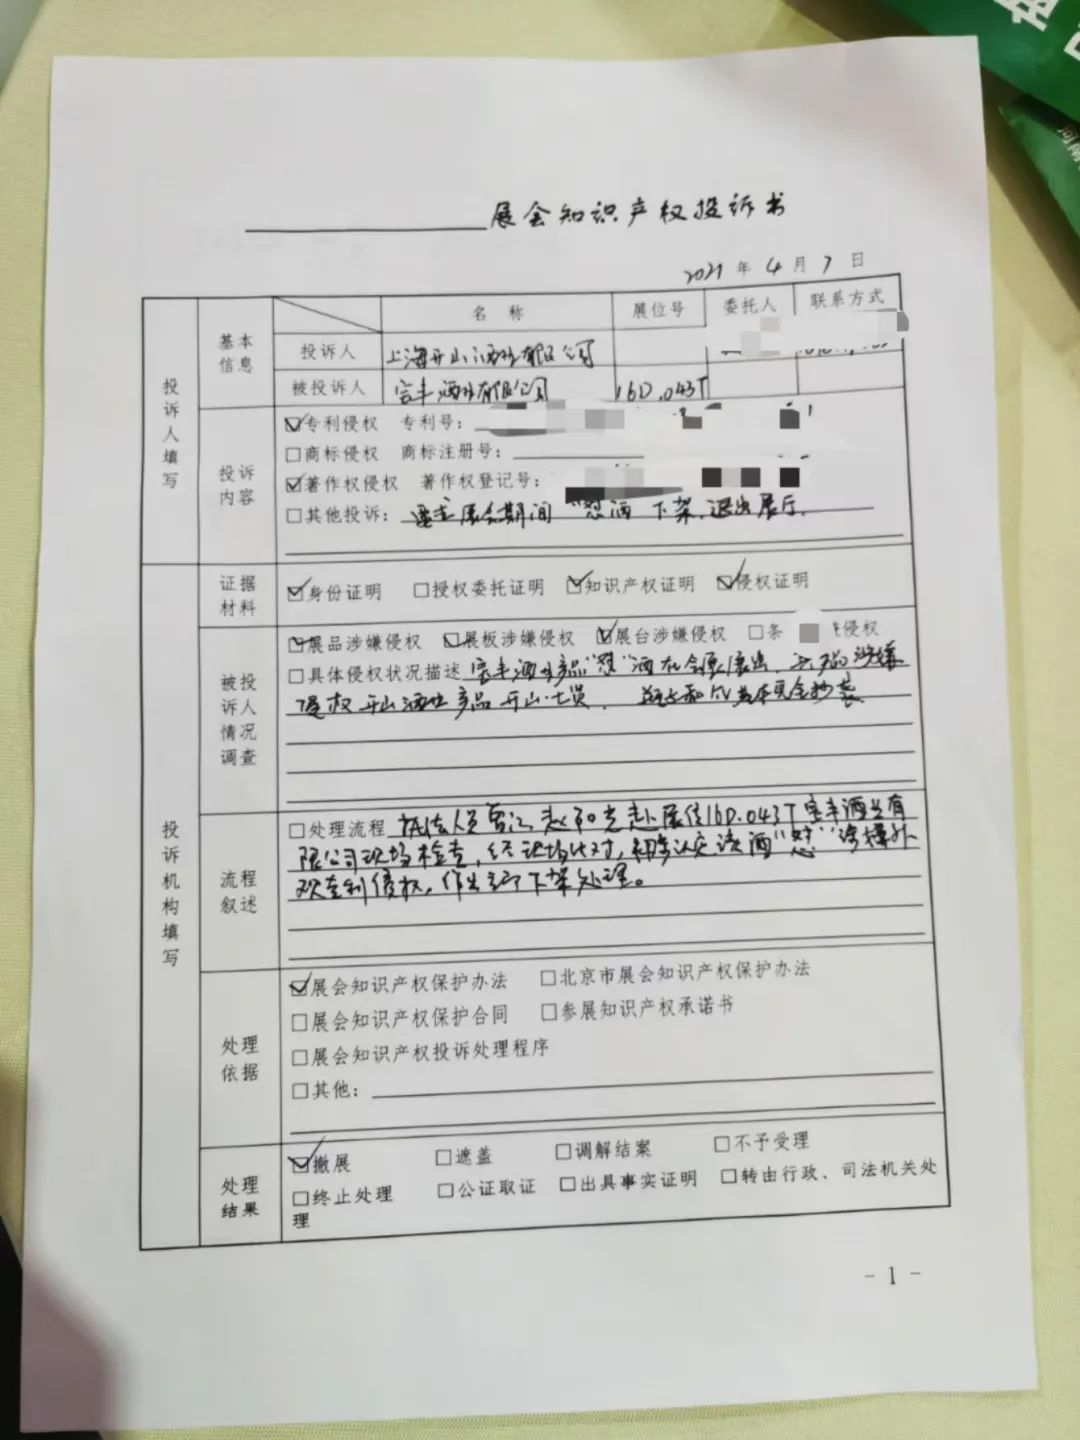 展会知识产权投诉书
2021年4月7日
名称 展位号 委托人 联系方式
投诉人填写
基本信息
投诉人 上海开山酒业有限公司
被投诉人 宝丰酒业有限公司 16D.043T
投诉内容
☑专利侵权 专利号:
□商标侵权 商标注册号:
☑著作权侵权 著作权登记号:
□其他投诉: 展会期间"怼酒"下架.退出展厅.
投诉机构填写
证据材料
☑身份证明 □授权委托证明 ☑知识产权证明 ☑侵权证明
被投诉人情况调查
☑展品涉嫌侵权 ☑展板涉嫌侵权 ☑展台涉嫌侵权 □条 侵权
□具体侵权状况描述 宝丰酒业产品"怼"酒在会展展出, 涉嫌
侵权开山酒业产品开山七员, 基本完全抄袭
流程叙述
□处理流程 执法人员 赴展位16D.043T宝丰酒业有
限公司现场检查,经现场比对,初步认定该酒"怼"涉嫌外
观专利侵权,作出立即下架处理。
处理依据
☑展会知识产权保护办法 □北京市展会知识产权保护办法
□展会知识产权保护合同 □参展知识产权承诺书
□展会知识产权投诉处理程序
□其他:
处理结果
☑撤展 □遮盖 □调解结案 □不予受理
□终止处理 □公证取证 □出具事实证明 □转由行政、司法机关处
理
- 1 -
河南